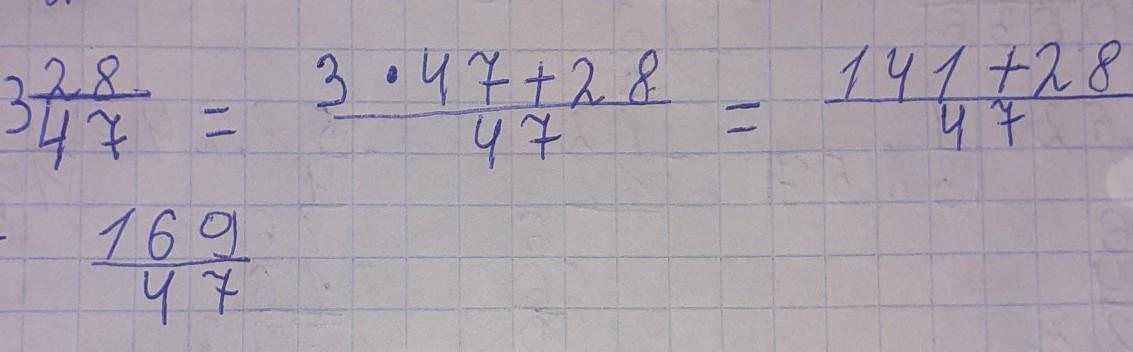 3 28/47 = 3 · 47 + 28/47 = 141 + 28/47
169/47